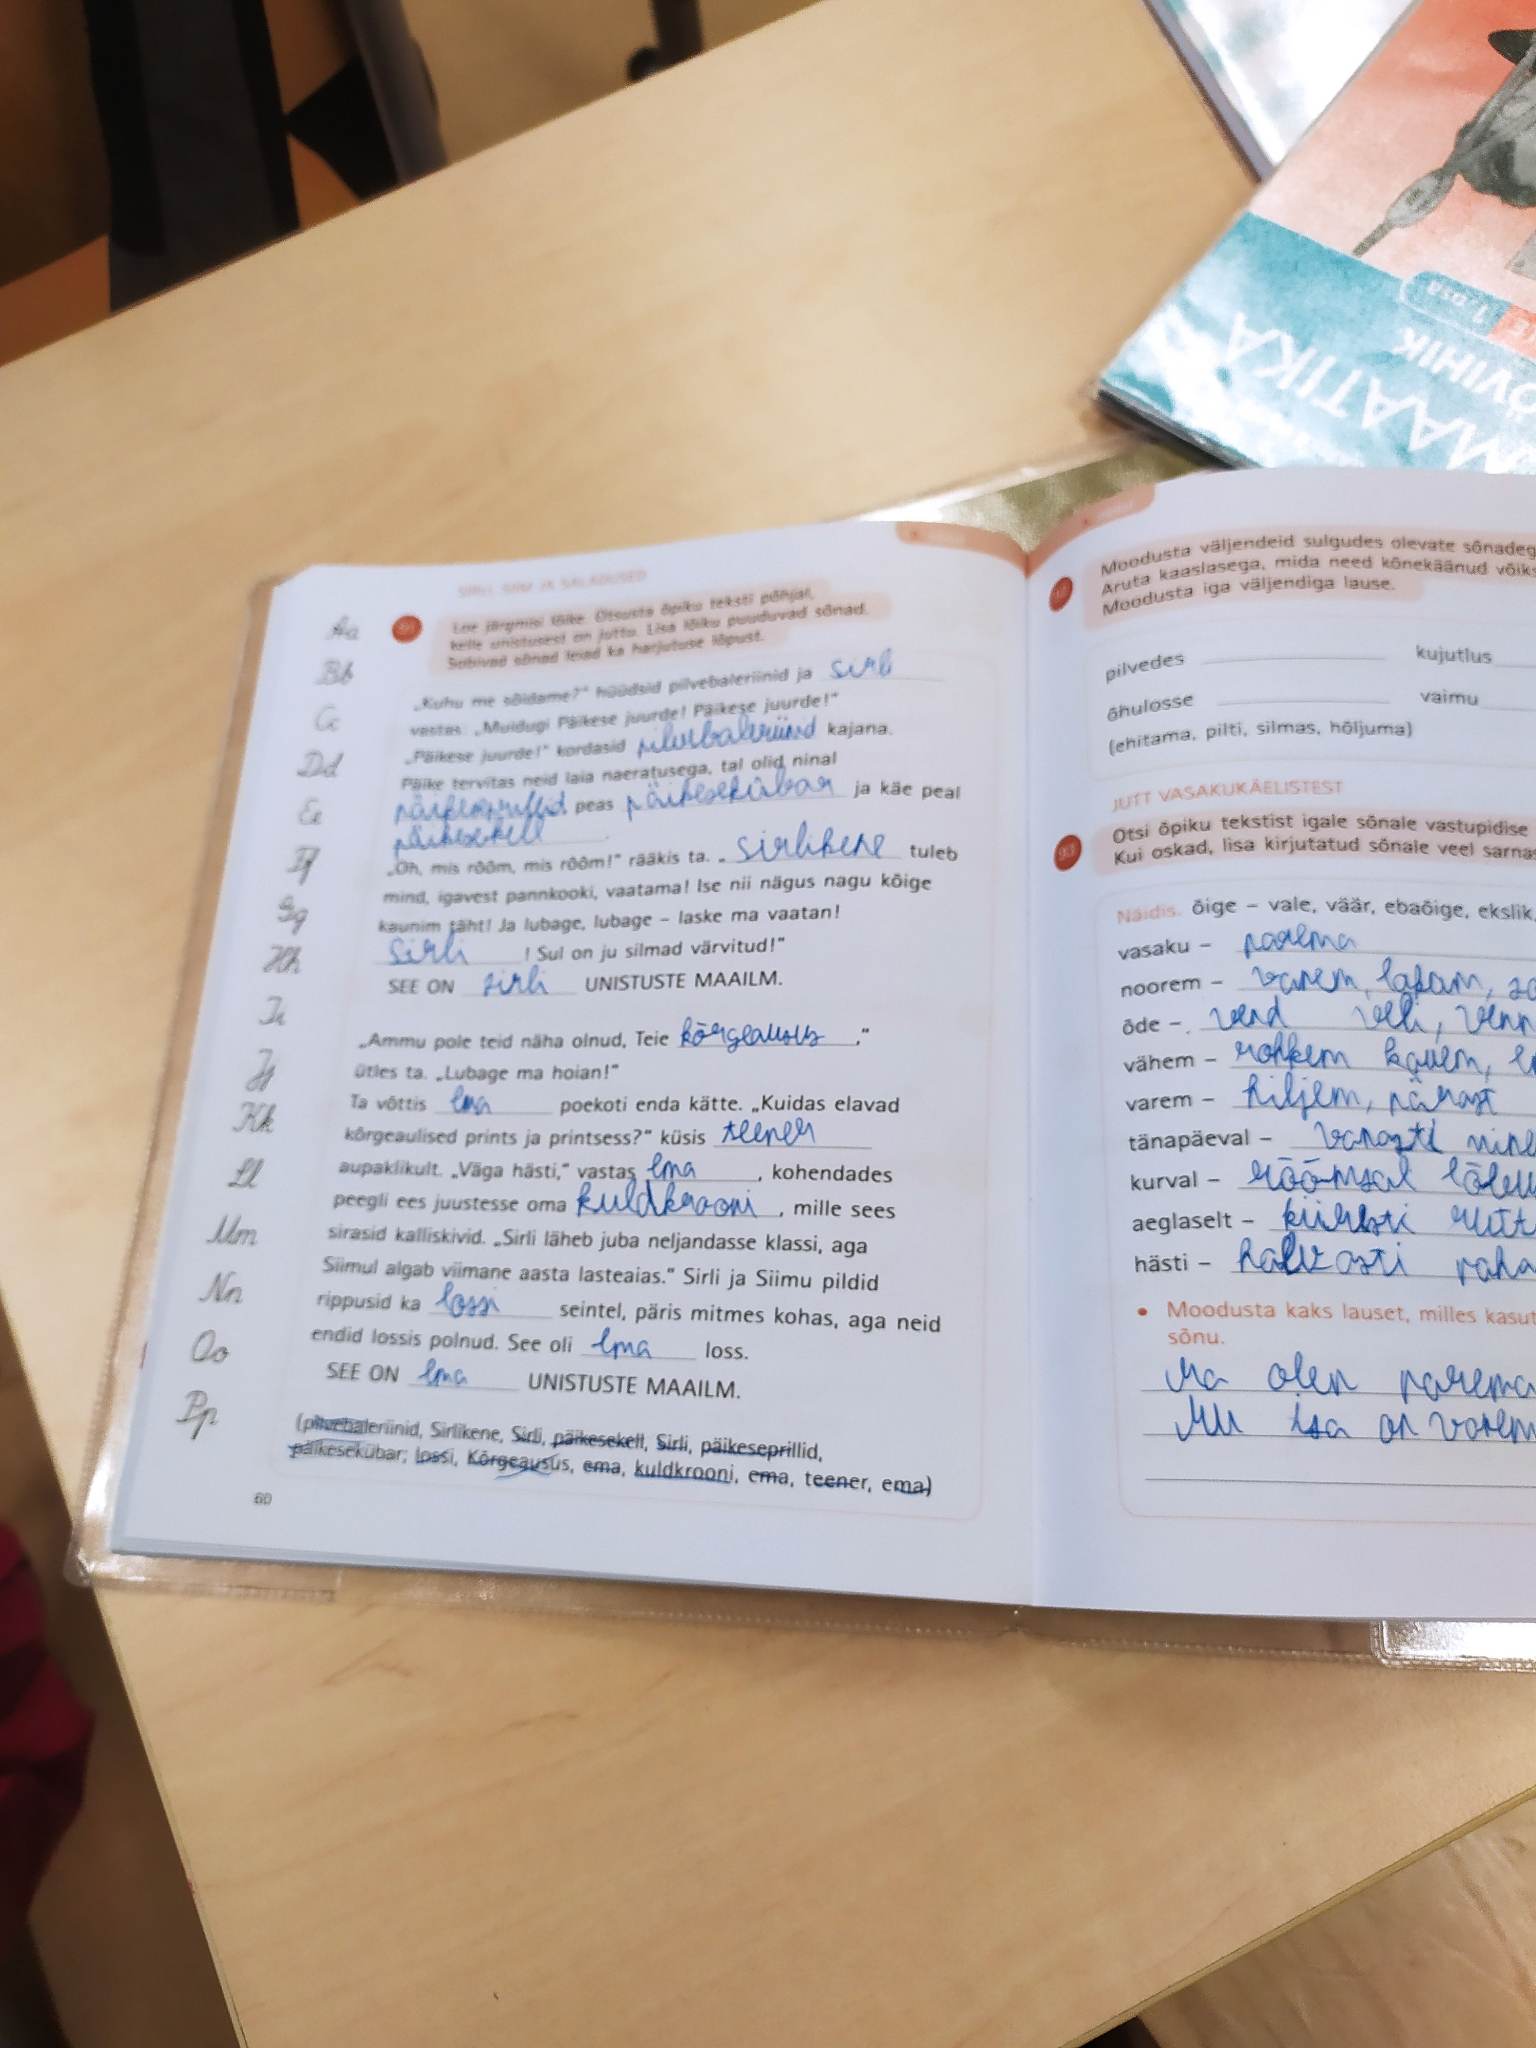 MAATIKA
ÖVIHIK
1. osa
SIRLI, SIIM JA SALADUSED
Loe järgmisi lõike. Otsusta õpiku teksti põhjal,
kelle unistusest on juttu. Lisa lõiku puuduvad sõnad.
Sobivad sõnad leiad ka harjutuse lõpust.
„Kuhu me sõidame?“ hüüdsid pilvebaleriinid ja sirli
vastas: „Muidugi Päikese juurde! Päikese juurde!“
„Päikese juurde!“ kordasid pilvebaleriinid kajana.
Päike tervitas neid laia naeratusega, tal olid ninal
päikeseprillid, peas päikesekübar ja käe peal
päikesekell.
„Oh, mis rõõm, mis rõõm!“ rääkis ta. „sirlikene tuleb
mind, igavest pannkooki, vaatama! Ise nii nägus nagu kõige
kaunim täht! Ja lubage, lubage – laske ma vaatan!
Sirli! Sul on ju silmad värvitud!“
SEE ON sirli UNISTUSTE MAAILM.
„Ammu pole teid näha olnud, Teie kõrgeausus,“
ütles ta. „Lubage ma hoian!“
Ta võttis ema poekoti enda kätte. „Kuidas elavad
kõrgeaulised prints ja printsess?“ küsis teener
aupaklikult. „Väga hästi,“ vastas ema, kohendades
peegli ees juustesse oma kuldkrooni, mille sees
sirasid kalliskivid. „Sirli läheb juba neljandasse klassi, aga
Siimul algab viimane aasta lasteaias.“ Sirli ja Siimu pildid
rippusid ka lossi seintel, päris mitmes kohas, aga neid
endid lossis polnud. See oli ema loss.
SEE ON ema UNISTUSTE MAAILM.
(pilvebaleriinid, Sirlikene, Sirli, päikesekell, Sirli, päikeseprillid,
päikesekübar, lossi, Kõrgeausus, ema, kuldkrooni, ema, teener, ema)
60
Aa
Bb
Cc
Dd
Ee
Ff
Gg
Hh
Ii
Jj
Kk
Ll
Mm
Nn
Oo
Pp
Moodusta väljendeid sulgudes olevate sõnadeg
Aruta kaaslasega, mida need kõnekäänud võiks
Moodusta iga väljendiga lause.
pilvedes kujutlus
õhulosse vaimu
(ehitama, pilti, silmas, hõljuma)
JUTT VASAKUKÄELISTEST
93 Otsi õpiku tekstist igale sõnale vastupidise
Kui oskad, lisa kirjutatud sõnale veel sarnas
Näidis. õige – vale, väär, ebaõige, ekslik,
vasaku – parema
noorem – vanem,
õde – vend veli, venn
vähem – rohkem
varem – hiljem, pärast
tänapäeval – vanasti
kurval – rõõmsal
aeglaselt – kiiresti
hästi – halvasti paha
• Moodusta kaks lauset, milles kasut
sõnu.
Ma olen parema
Mu isa on vanem